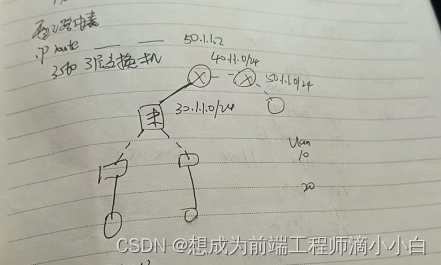 ip route
3层交换机
50.1.1.2
40.1.1.0/24
50.1.1.0/24
30.1.1.0/24
Vlan
10
20
CSDN @想成为前端工程师滴小小白